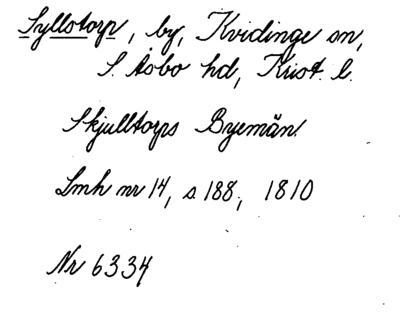 Syllstorp, by, Kvidinge sn,
S. Åsbo hd, Krist. l.
Skjulltorps Byemän.
Lmh nr 14, s 188, 1810
Nr 6334